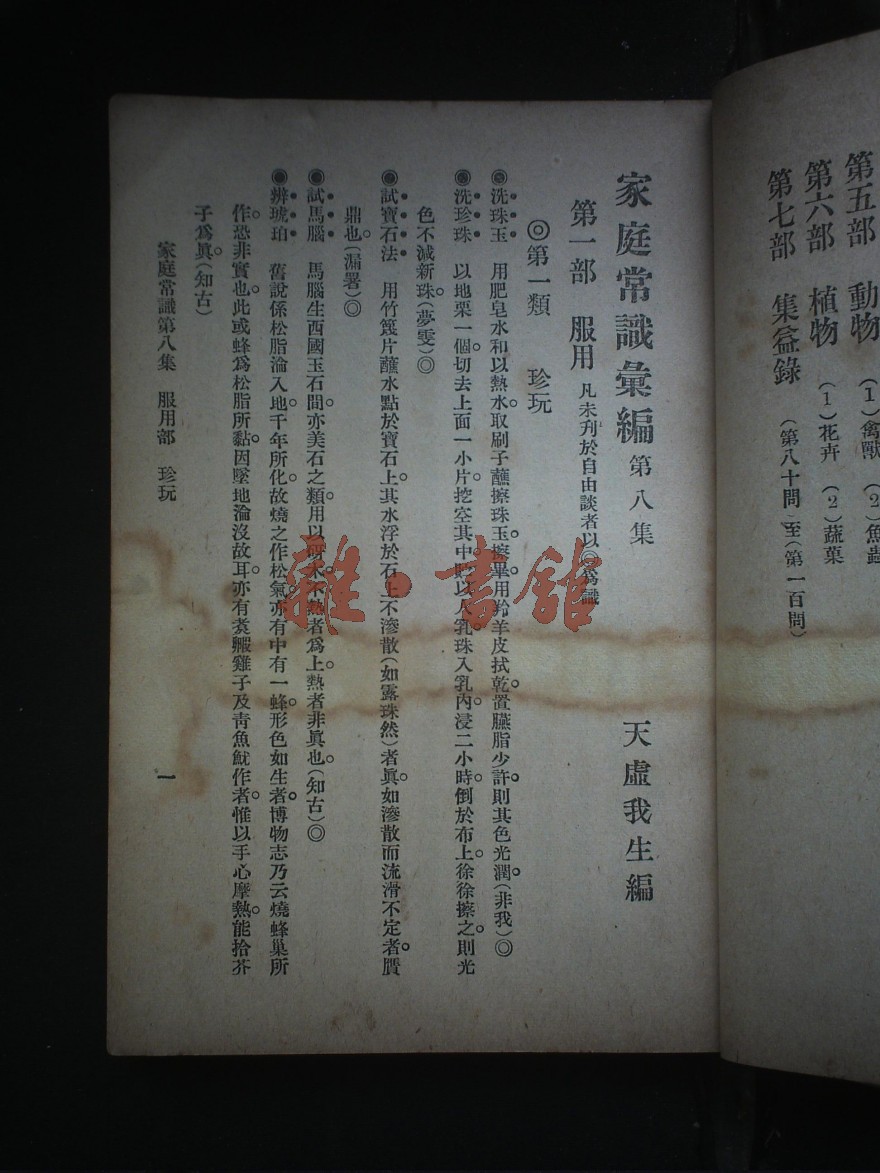 第五部　動物　（1）禽獸　（2）魚蟲
第六部　植物　（1）花卉　（2）蔬菓
第七部　集益錄　（第八十問）至（第一百問）
家庭常識彙編　第八集　天虛我生編
第一部　服用　凡未刋於自由談者以◎爲識
◎第一類　珍玩
◉洗珠玉　用肥皂水和以熱水。取刷子蘸擦珠玉。擦畢用羚羊皮拭乾。置臙脂少許。則其色光潤。（非我）◎
◉洗珍珠　以地栗一個。切去上面一小片。挖空其中。貯以人乳。珠入乳內。浸二小時。倒於布上。徐徐擦之。則光
色不減新珠。（夢雯）◎
◉試寶石法　用竹篾片蘸水點於寶石上。其水浮於石上不滲散（如露珠然）者眞。如滲散而流滑不定者。贋
鼎也。（漏署）◎
◉試馬腦　馬腦生西國玉石間。亦美石之類。用以砑木。不熱者爲上。熱者非眞也。（知古）◎
◉辨琥珀　舊說係松脂淪入地。千年所化。故燒之作松氣。亦有中有一蜂。形色如生者。博物志乃云燒蜂巢所
作。恐非實也。此或蜂爲松脂所黏。因墜地淪沒故耳。亦有煑毈雞子及靑魚魷作者。惟以手心摩熱。能拾芥
子爲眞。（知古）
家庭常識第八集　服用部　珍玩
一
雜·書舘